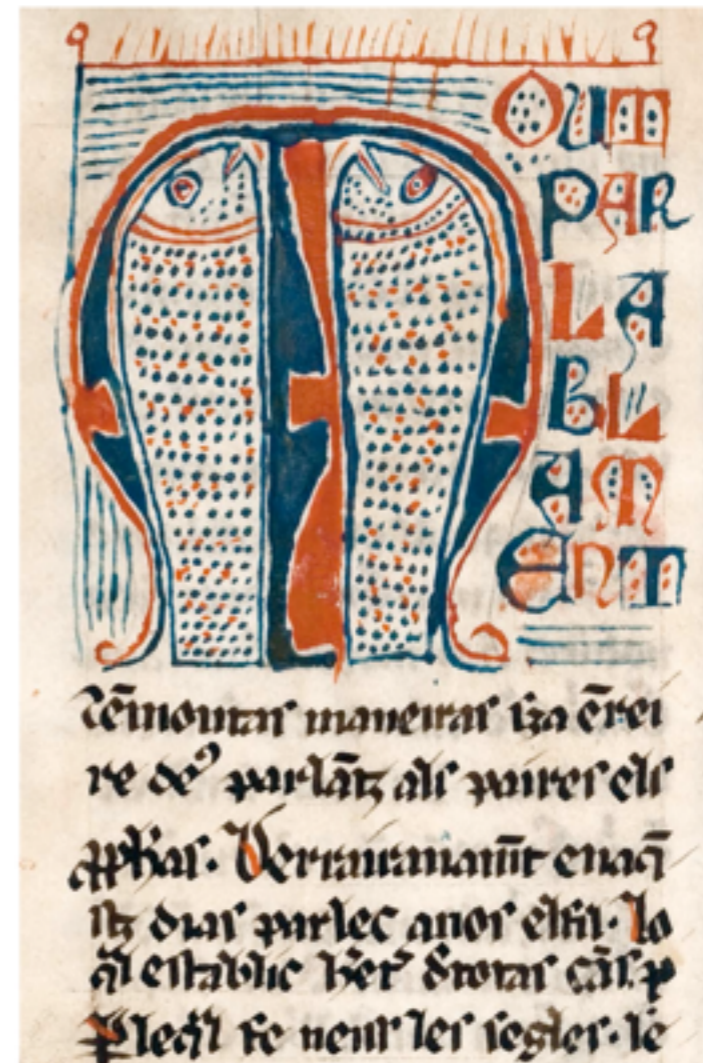 M OUM
PAR
LA
BL
AM
ENT
⁊ẽ moutas maneiras sza ẽ rei
re deꝰ parlãtz als paires els
ꝓphas. Derrairanamẽt en aq̃
stz dias parlec anos el fil. lo
q̃l establic heret d totas cãs. p
le q̃l fe neus les segles. le